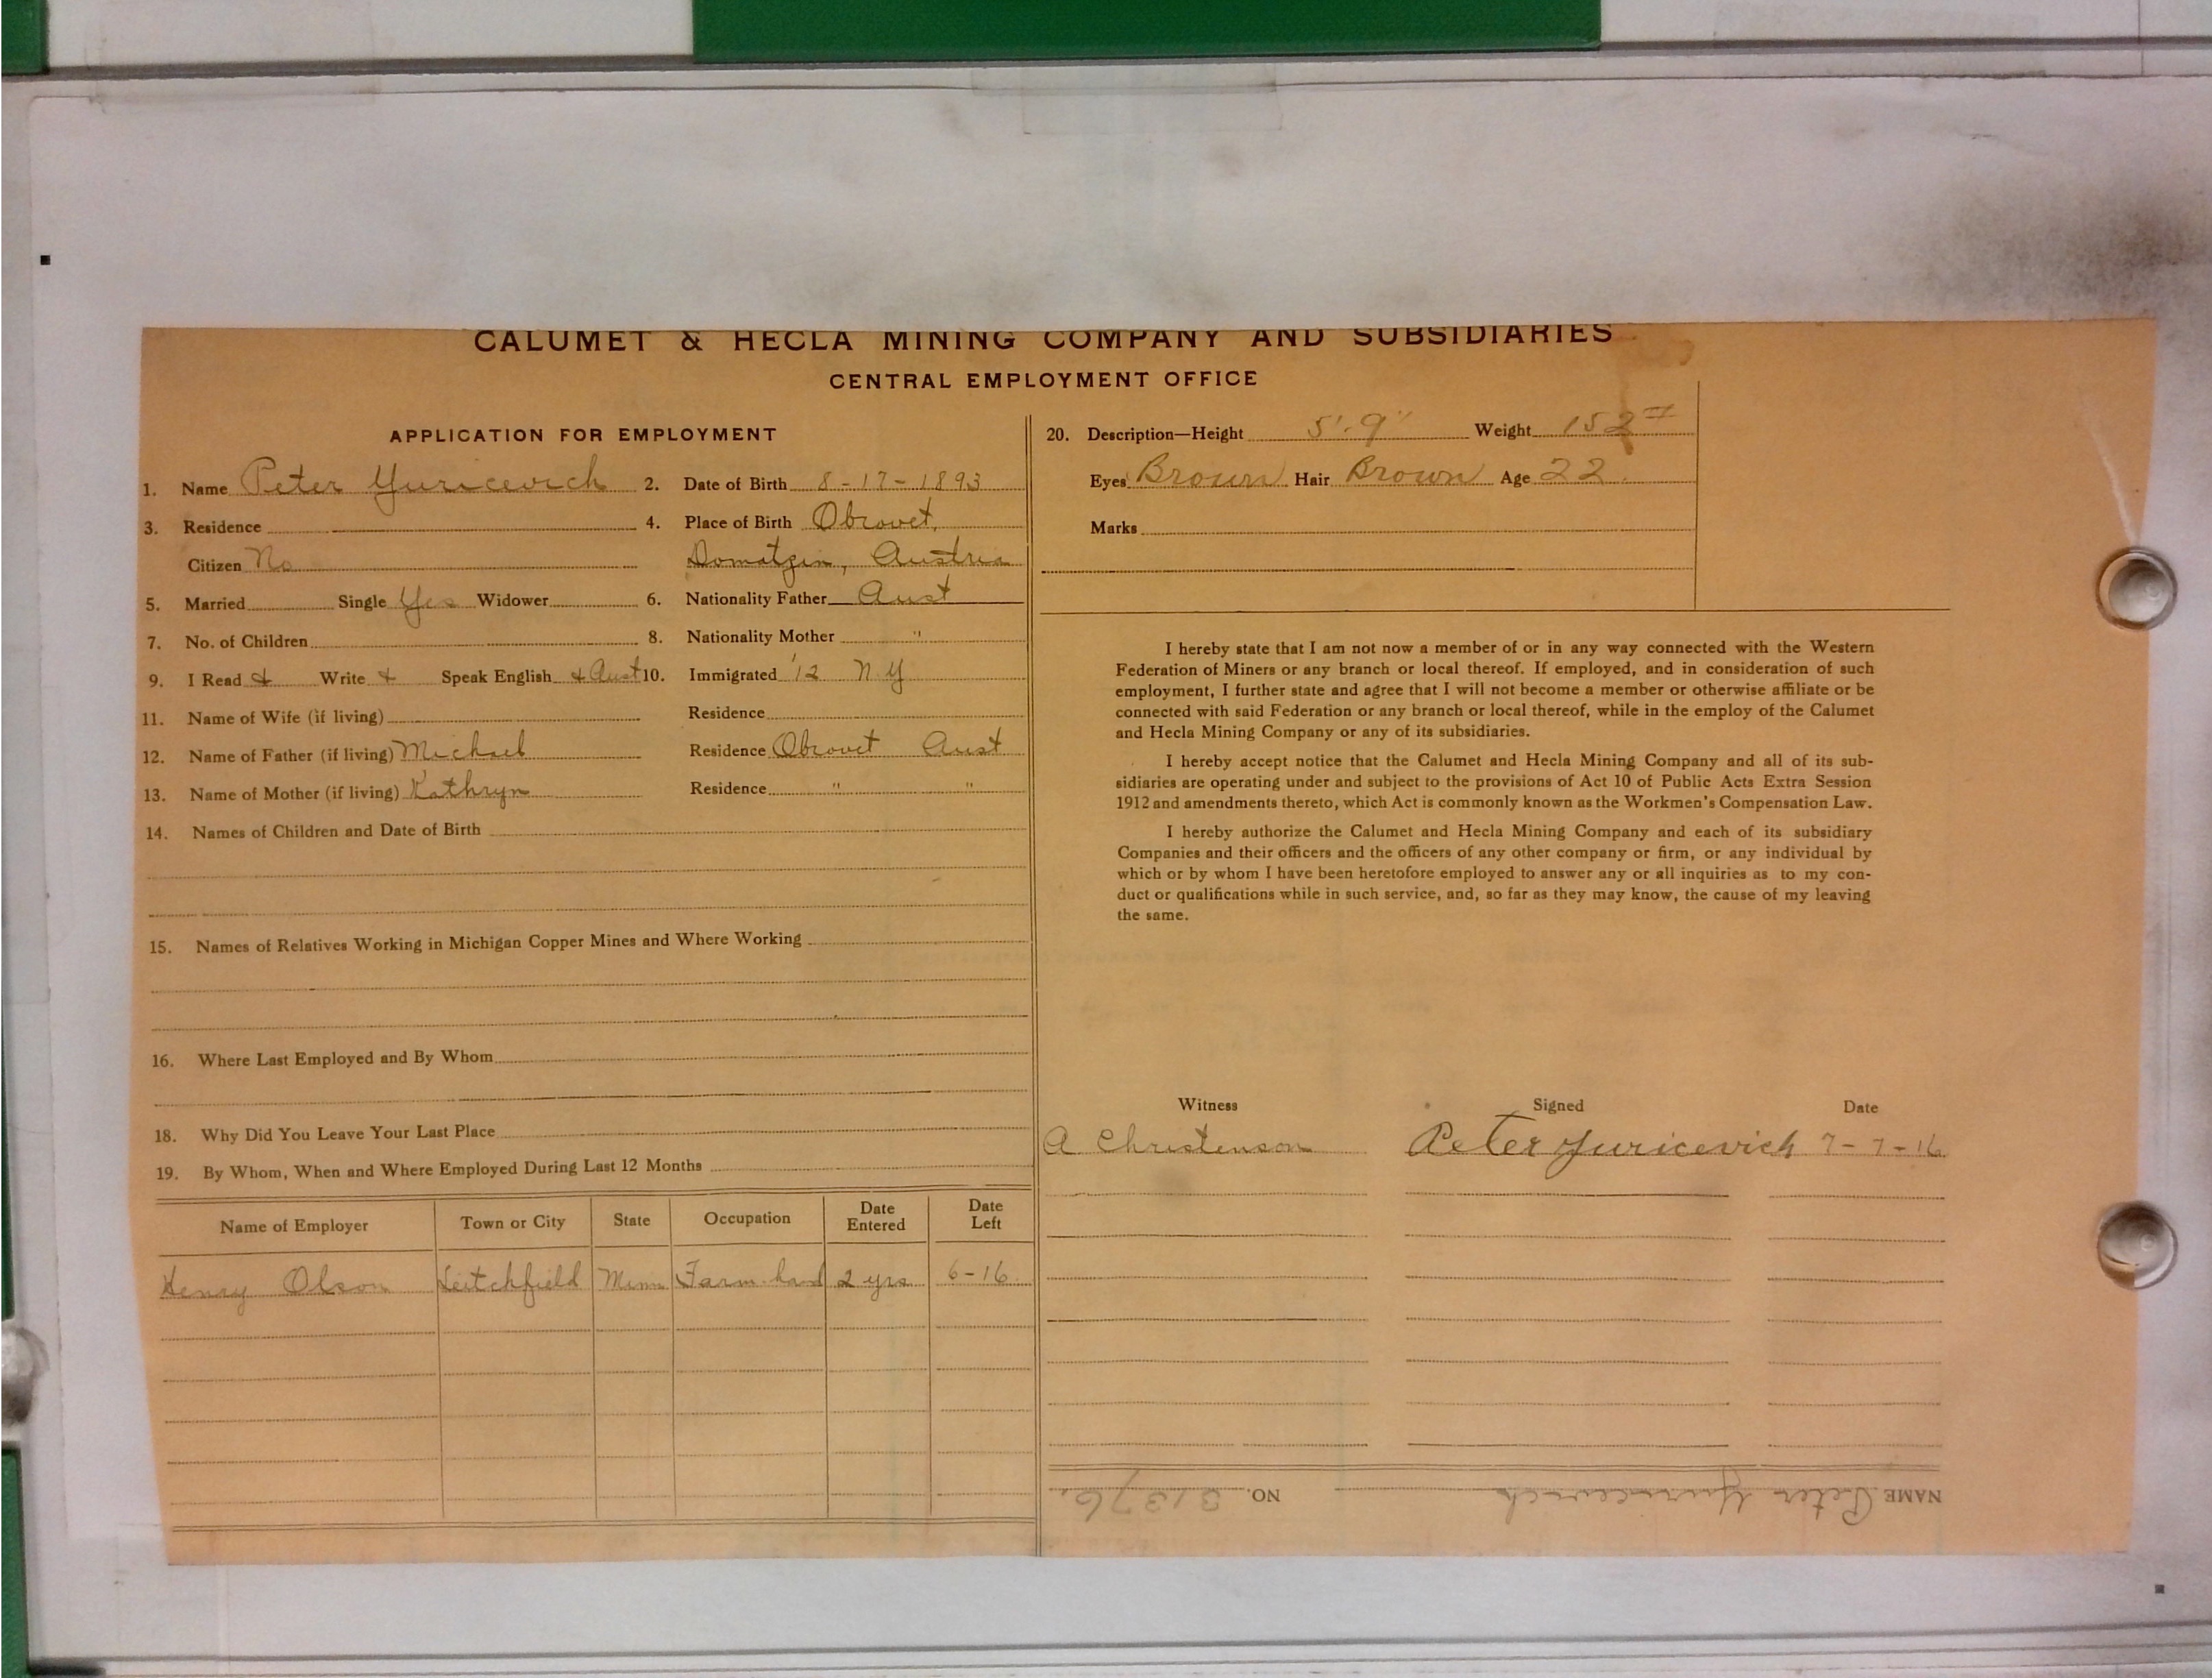 CALUMET & HECLA MINING COMPANY AND SUBSIDIARIES
CENTRAL EMPLOYMENT OFFICE
APPLICATION FOR EMPLOYMENT
1. Name Peter Yuricevich 2. Date of Birth 8-17-1893
3. Residence 4. Place of Birth Obrovet,
Citizen No Domatzin, Austria
5. Married Single Yes Widower 6. Nationality Father Aust
7. No. of Children 8. Nationality Mother "
9. I Read & Write & Speak English & Aust 10. Immigrated '12 N.Y
11. Name of Wife (if living) Residence
12. Name of Father (if living) Michael Residence Obrovet Aust
13. Name of Mother (if living) Kathryn Residence " "
14. Names of Children and Date of Birth
15. Names of Relatives Working in Michigan Copper Mines and Where Working
16. Where Last Employed and By Whom
18. Why Did You Leave Your Last Place
19. By Whom, When and Where Employed During Last 12 Months
Name of Employer Town or City State Occupation Date Entered Date Left
Henry Olson Leitchfield Minn Farm hand 2 yrs 6-16
20. Description—Height 5'-9" Weight 152 #
Eyes Brown Hair Brown Age 22.
Marks
I hereby state that I am not now a member of or in any way connected with the Western
Federation of Miners or any branch or local thereof. If employed, and in consideration of such
employment, I further state and agree that I will not become a member or otherwise affiliate or be
connected with said Federation or any branch or local thereof, while in the employ of the Calumet
and Hecla Mining Company or any of its subsidiaries.
I hereby accept notice that the Calumet and Hecla Mining Company and all of its sub-
sidiaries are operating under and subject to the provisions of Act 10 of Public Acts Extra Session
1912 and amendments thereto, which Act is commonly known as the Workmen's Compensation Law.
I hereby authorize the Calumet and Hecla Mining Company and each of its subsidiary
Companies and their officers and the officers of any other company or firm, or any individual by
which or by whom I have been heretofore employed to answer any or all inquiries as to my con-
duct or qualifications while in such service, and, so far as they may know, the cause of my leaving
the same.
Witness Signed Date
A Christenson Peter Yuricevich 7-7-16
NAME Peter Yuricevich NO. 31376.